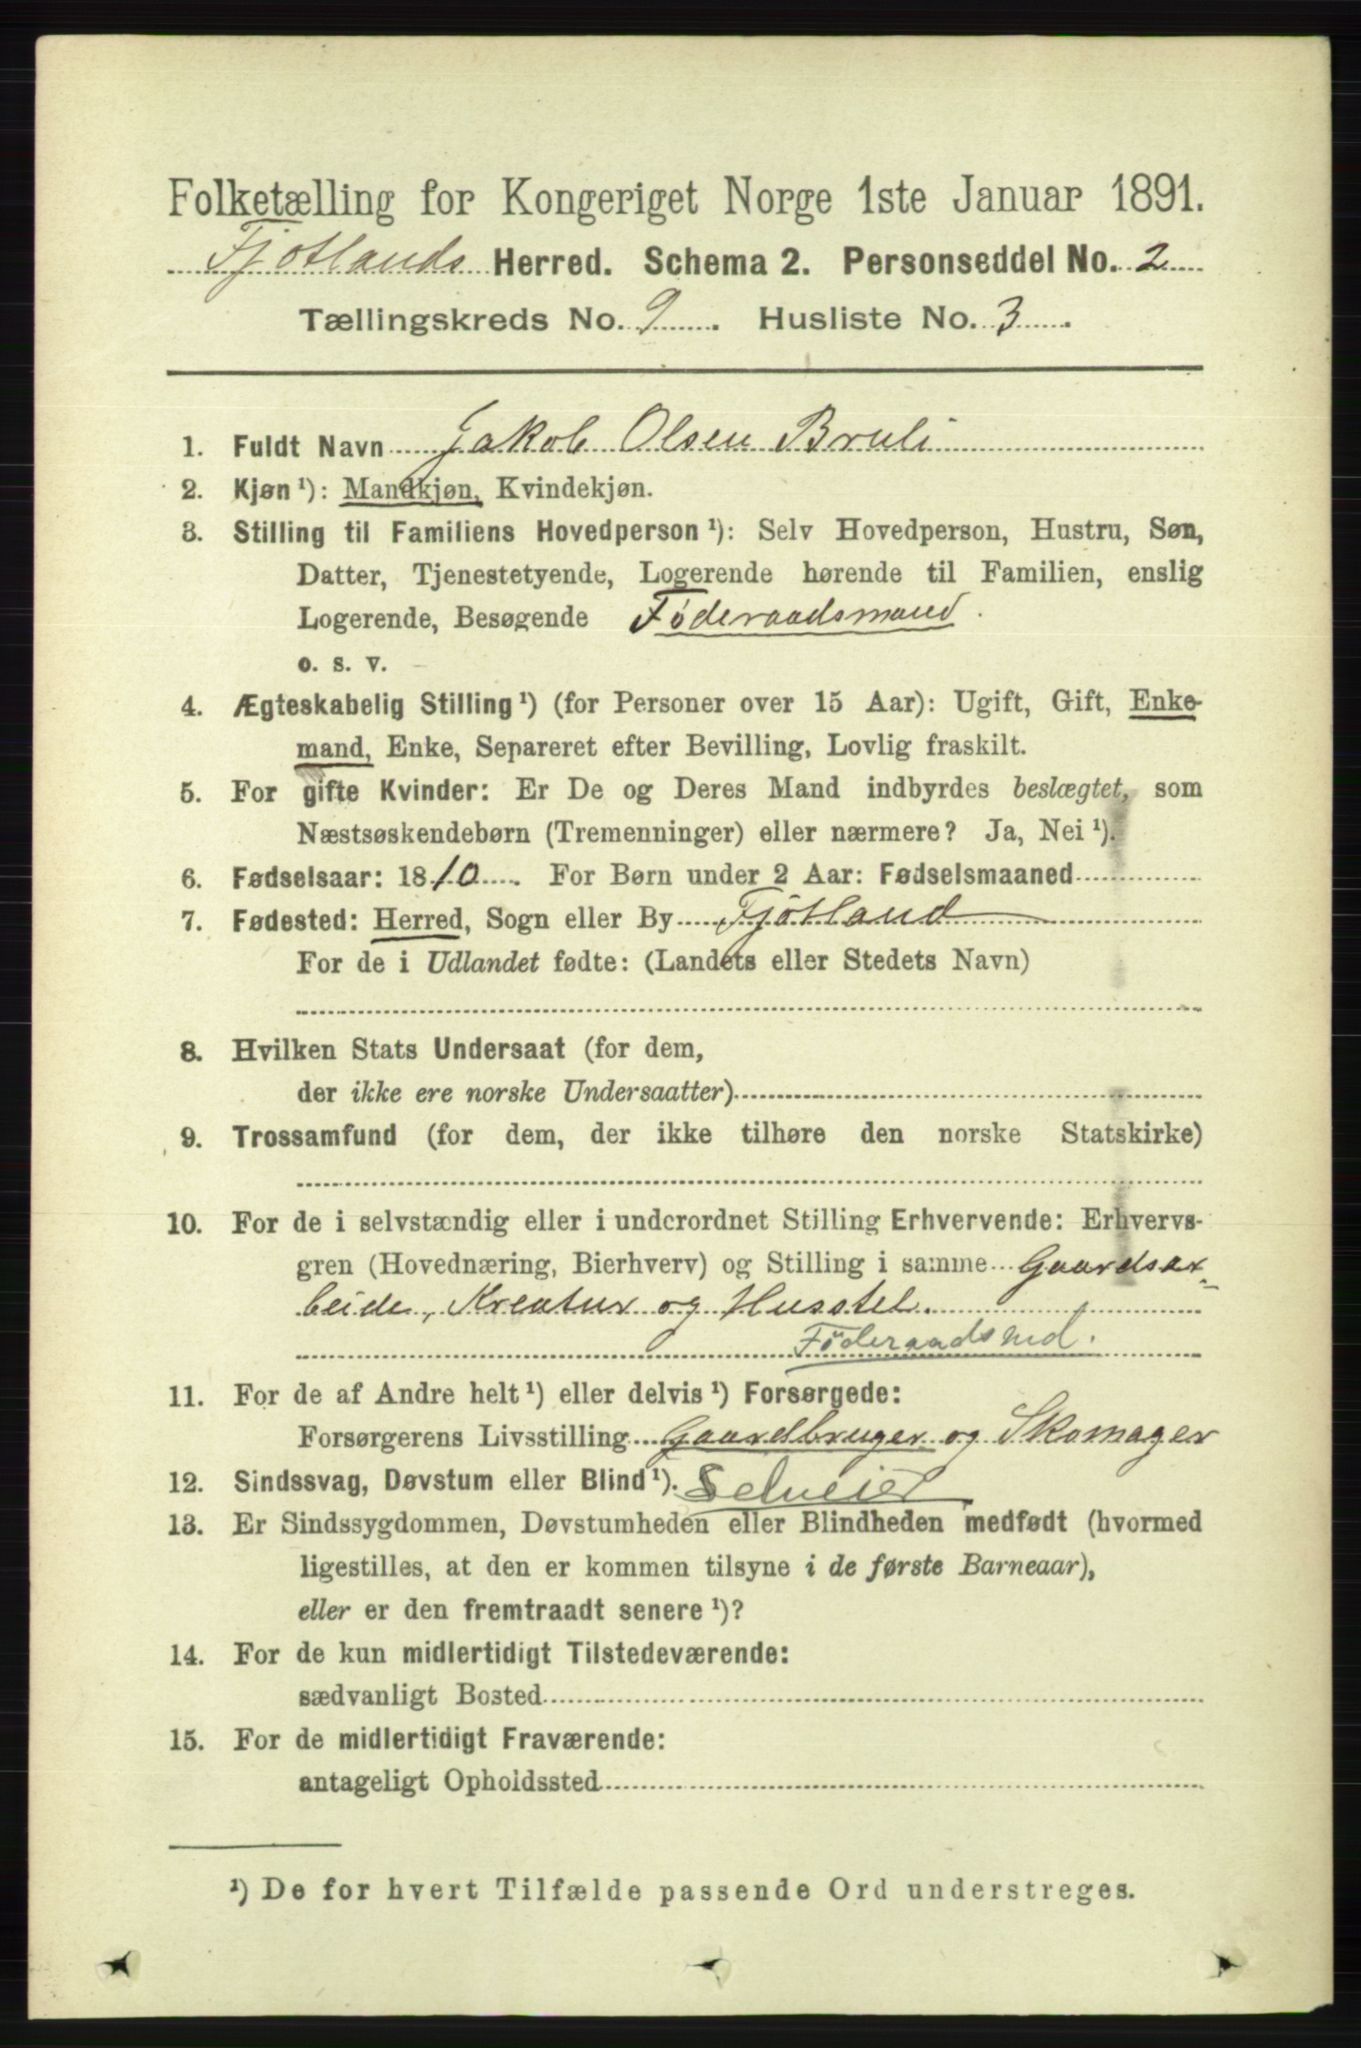 Folketælling for Kongeriget Norge 1ste Januar 1891.
Fjotlands Herred. Schema 2. Personseddel No. 2
Tællingskreds No. 9. Husliste No. 3.
1. Fuldt Navn Jakob Olsen Bruli
2. Kjøn ¹): Mandkjøn, Kvindekjøn.
3. Stilling til Familiens Hovedperson ¹): Selv Hovedperson, Hustru, Søn,
Datter, Tjenestetyende, Logerende hørende til Familien, enslig
Logerende, Besøgende Føderaadsmand.
o. s. v.
4. Ægteskabelig Stilling ¹) (for Personer over 15 Aar): Ugift, Gift, Enke-
mand, Enke, Separeret efter Bevilling, Lovlig fraskilt.
5. For gifte Kvinder: Er De og Deres Mand indbyrdes beslægtet, som
Næstsøskendebørn (Tremenninger) eller nærmere? Ja, Nei ¹).
6. Fødselsaar: 1810. For Børn under 2 Aar: Fødselsmaaned
7. Fødested: Herred, Sogn eller By Fjotland
For de i Udlandet fødte: (Landets eller Stedets Navn)
8. Hvilken Stats Undersaat (for dem,
der ikke ere norske Undersaatter)
9. Trossamfund (for dem, der ikke tilhøre den norske Statskirke)
10. For de i selvstændig eller i underordnet Stilling Erhvervende: Erhvervs-
gren (Hovednæring, Bierhverv) og Stilling i samme Gaardsar-
beide, Kreatur og Husstel.
Føderaadsmd.
11. For de af Andre helt ¹) eller delvis ¹) Forsørgede:
Forsørgerens Livsstilling Gaardbruger og Skomager
12. Sindssvag, Døvstum eller Blind ¹). Selveier
13. Er Sindssygdommen, Døvstumheden eller Blindheden medfødt (hvormed
ligestilles, at den er kommen tilsyne i de første Barneaar),
eller er den fremtraadt senere ¹)?
14. For de kun midlertidigt Tilstedeværende:
sædvanligt Bosted
15. For de midlertidigt Fraværende:
antageligt Opholdssted
¹) De for hvert Tilfælde passende Ord understreges.